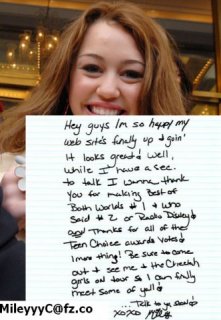 Hey guys Im so happy my
web site's finally up & goin'
It looks great! well,
while I have a sec.
to talk I wanna thank
you for making Best of
Both Worlds # 1 & who
said # 2 on Radio Disney!
and Thanks for all of the
Teen Choice awards votes!
1 more thing! Be sure to come
out & see me & the Cheetah
girls on tour so I can finally
meet some of ya'll!
...Talk to ya soon!
XOXO
MileyyyC@fz.co